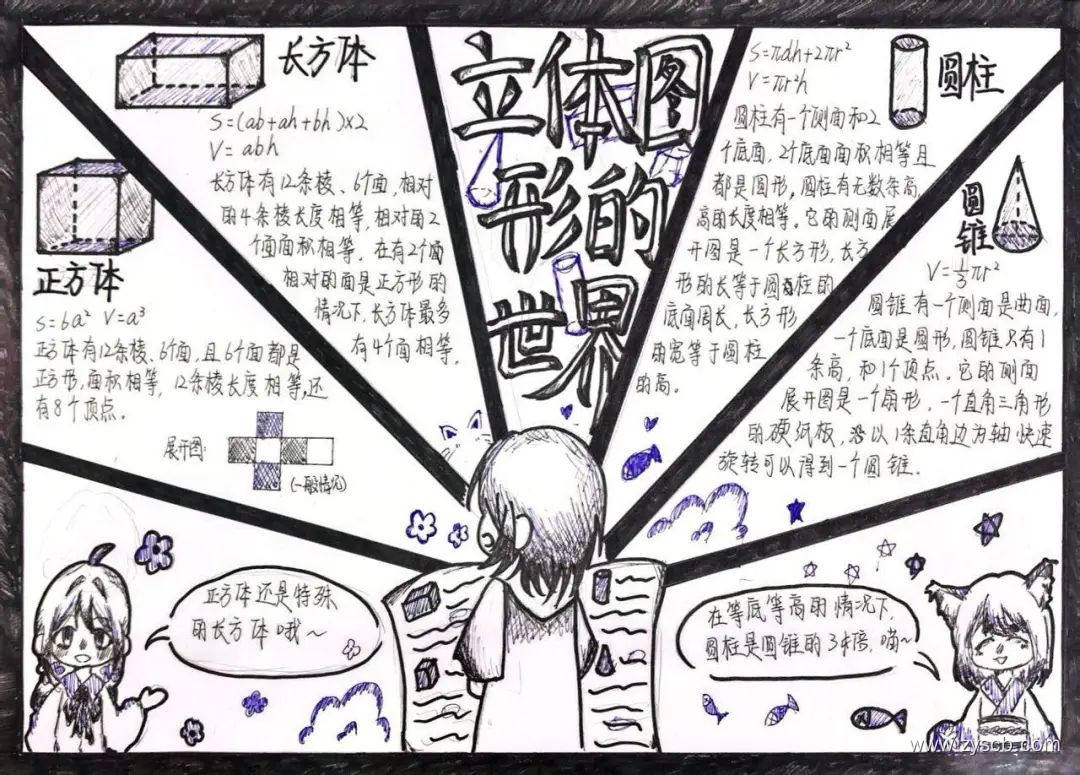 立体图
形的
世界
长方体
S=(ab+ah+bh)×2
V=abh
长方体有12条棱、6个面,相对
的4条棱长度相等,相对的2
个面面积相等。在有2个面
相对的面是正方形的
情况下,长方体最多
有4个面相等。
正方体
S=6a² V=a³
正方体有12条棱、6个面,且6个面都是
正方形,面积相等,12条棱长度相等,还
有8个顶点。
展开图:
(一般情况)
S=πdh+2πr²
V=πr²h
圆柱
圆柱有一个侧面和2
个底面,2个底面面积相等且
都是圆形,圆柱有无数条高,
高的长度相等。它的侧面展
开图是一个长方形,长方
形的长等于圆柱的
底面周长,长方形
的宽等于圆柱
的高。
圆
锥
V=⅓πr²
圆锥有一个侧面是曲面,
一个底面是圆形,圆锥只有1
条高,和1个顶点。它的侧面
展开图是一个扇形,一个直角三角形
的硬纸板,沿以1条直角边为轴快速
旋转可以得到一个圆锥。
正方体还是特殊
的长方体哦~
在等底等高的情况下,
圆柱是圆锥的3倍,喵~
www.zyscb.com